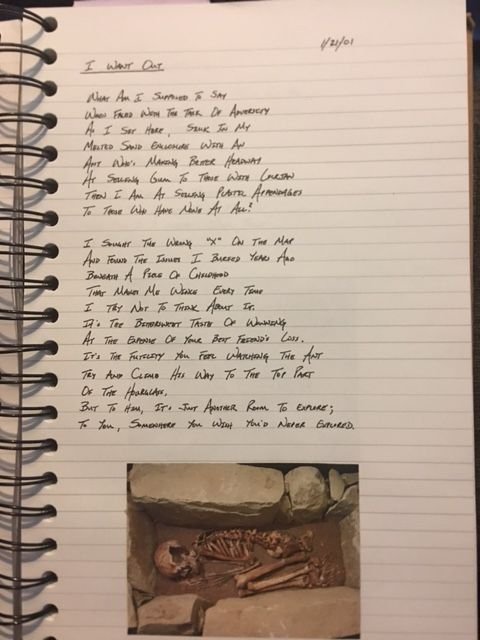 1/21/01
I Want Out
What Am I Supposed To Say
When Faced With The Task Of Adversity
As I Set Here, Stuck In My
Melted Sand Enclosure With An
Ant Who's Making Better Headway
At Selling Gum To Those With
Then I Am At Selling Plastic Appendages
To Those Who Have None At All?
I Sought The Wrong "X" On The Map
And Found The Issues I Buried Years Ago
Beneath A Piece Of Childhood
That Makes Me Wince Every Time
I Try Not To Think About It.
It's The Bittersweet Taste Of Winning
At The Expense Of Your Best Friend's Loss.
It's The Futility You Feel Watching The Ant
Try And Climb His Way To The Top Part
Of The Hourglass,
But To Him, It's Just Another Room To Explore;
To You, Somewhere You Wish You'd Never Explored.